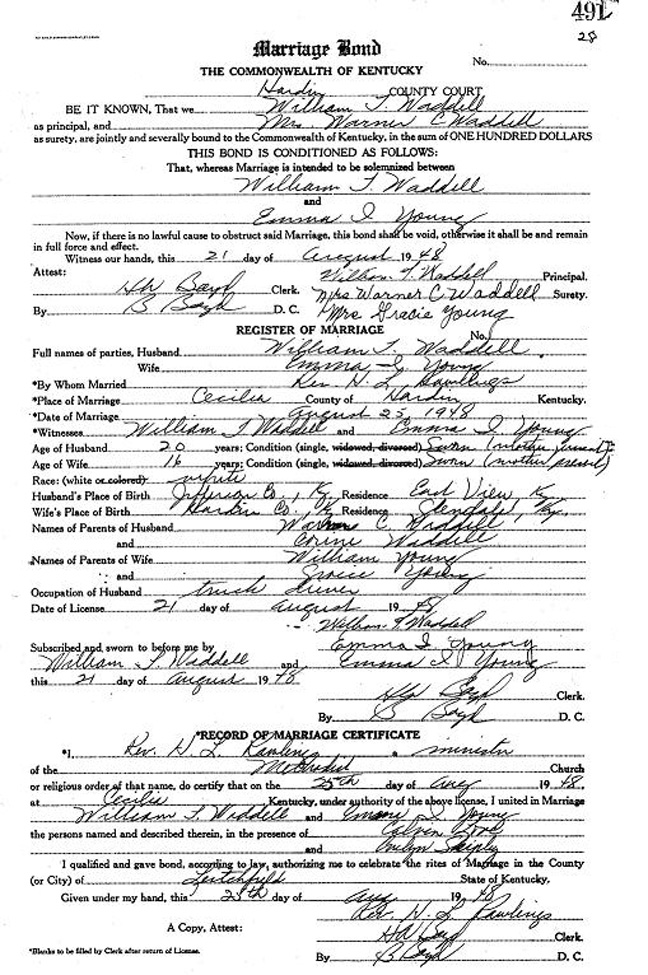 491
28
Marriage Bond
No.
THE COMMONWEALTH OF KENTUCKY
Hardin COUNTY COURT
BE IT KNOWN, That we William T. Waddell
as principal, and Mrs Warner C Waddell
as surety, are jointly and severally bound to the Commonwealth of Kentucky, in the sum of ONE HUNDRED DOLLARS
THIS BOND IS CONDITIONED AS FOLLOWS:
That, whereas Marriage is intended to be solemnized between
William T. Waddell
and
Emma I Young
Now, if there is no lawful cause to obstruct said Marriage, this bond shall be void, otherwise it shall be and remain
in full force and effect.
Witness our hands, this 21 day of August 1948
Attest: William T. Waddell Principal.
Boyd Clerk. Mrs Warner C Waddell Surety.
By B Boyd D. C. Mrs Gracie Young
REGISTER OF MARRIAGE No.
Full names of parties, Husband William T. Waddell
Wife Emma I. Young
*By Whom Married Rev. H. L. Rawlings
*Place of Marriage Cecilia County of Hardin Kentucky.
*Date of Marriage August 25, 1948
*Witnesses William T Waddell and Emma I Young
Age of Husband 20 years; Condition (single, widowed, divorced) Sworn (mother present)
Age of Wife 16 years; Condition (single, widowed, divorced) Sworn (mother present)
Race: (white or colored) white
Husband's Place of Birth Jefferson Co., Ky. Residence East View, Ky
Wife's Place of Birth Hardin Co., Ky Residence Glendale, Ky.
Names of Parents of Husband C. Waddell
and Corine Waddell
Names of Parents of Wife William Young
and Gracie Young
Occupation of Husband truck driver
Date of License 21 day of August 1948
William T Waddell
Subscribed and sworn to before me by Emma I Young
William T Waddell and Emma I Young
this 21 day of August 1948
Boyd Clerk.
By B Boyd D. C.
*RECORD OF MARRIAGE CERTIFICATE
*I, Rev. H. L Rawlings a minister
of the Methodist Church
or religious order of that name, do certify that on the 25th day of Aug 1948,
at Cecilia Kentucky, under authority of the above license, I united in Marriage
William T. Waddell and Emma I Young
the persons named and described therein, in the presence of
and Evelyn Shipley
I qualified and gave bond, according to law, authorizing me to celebrate the rites of Marriage in the County
(or City) of Leitchfield State of Kentucky.
Given under my hand, this 25th day of Aug 1948
Rev. H. L Rawlings
A Copy, Attest: Boyd Clerk.
*Blanks to be filled by Clerk after return of License. By B Boyd D. C.